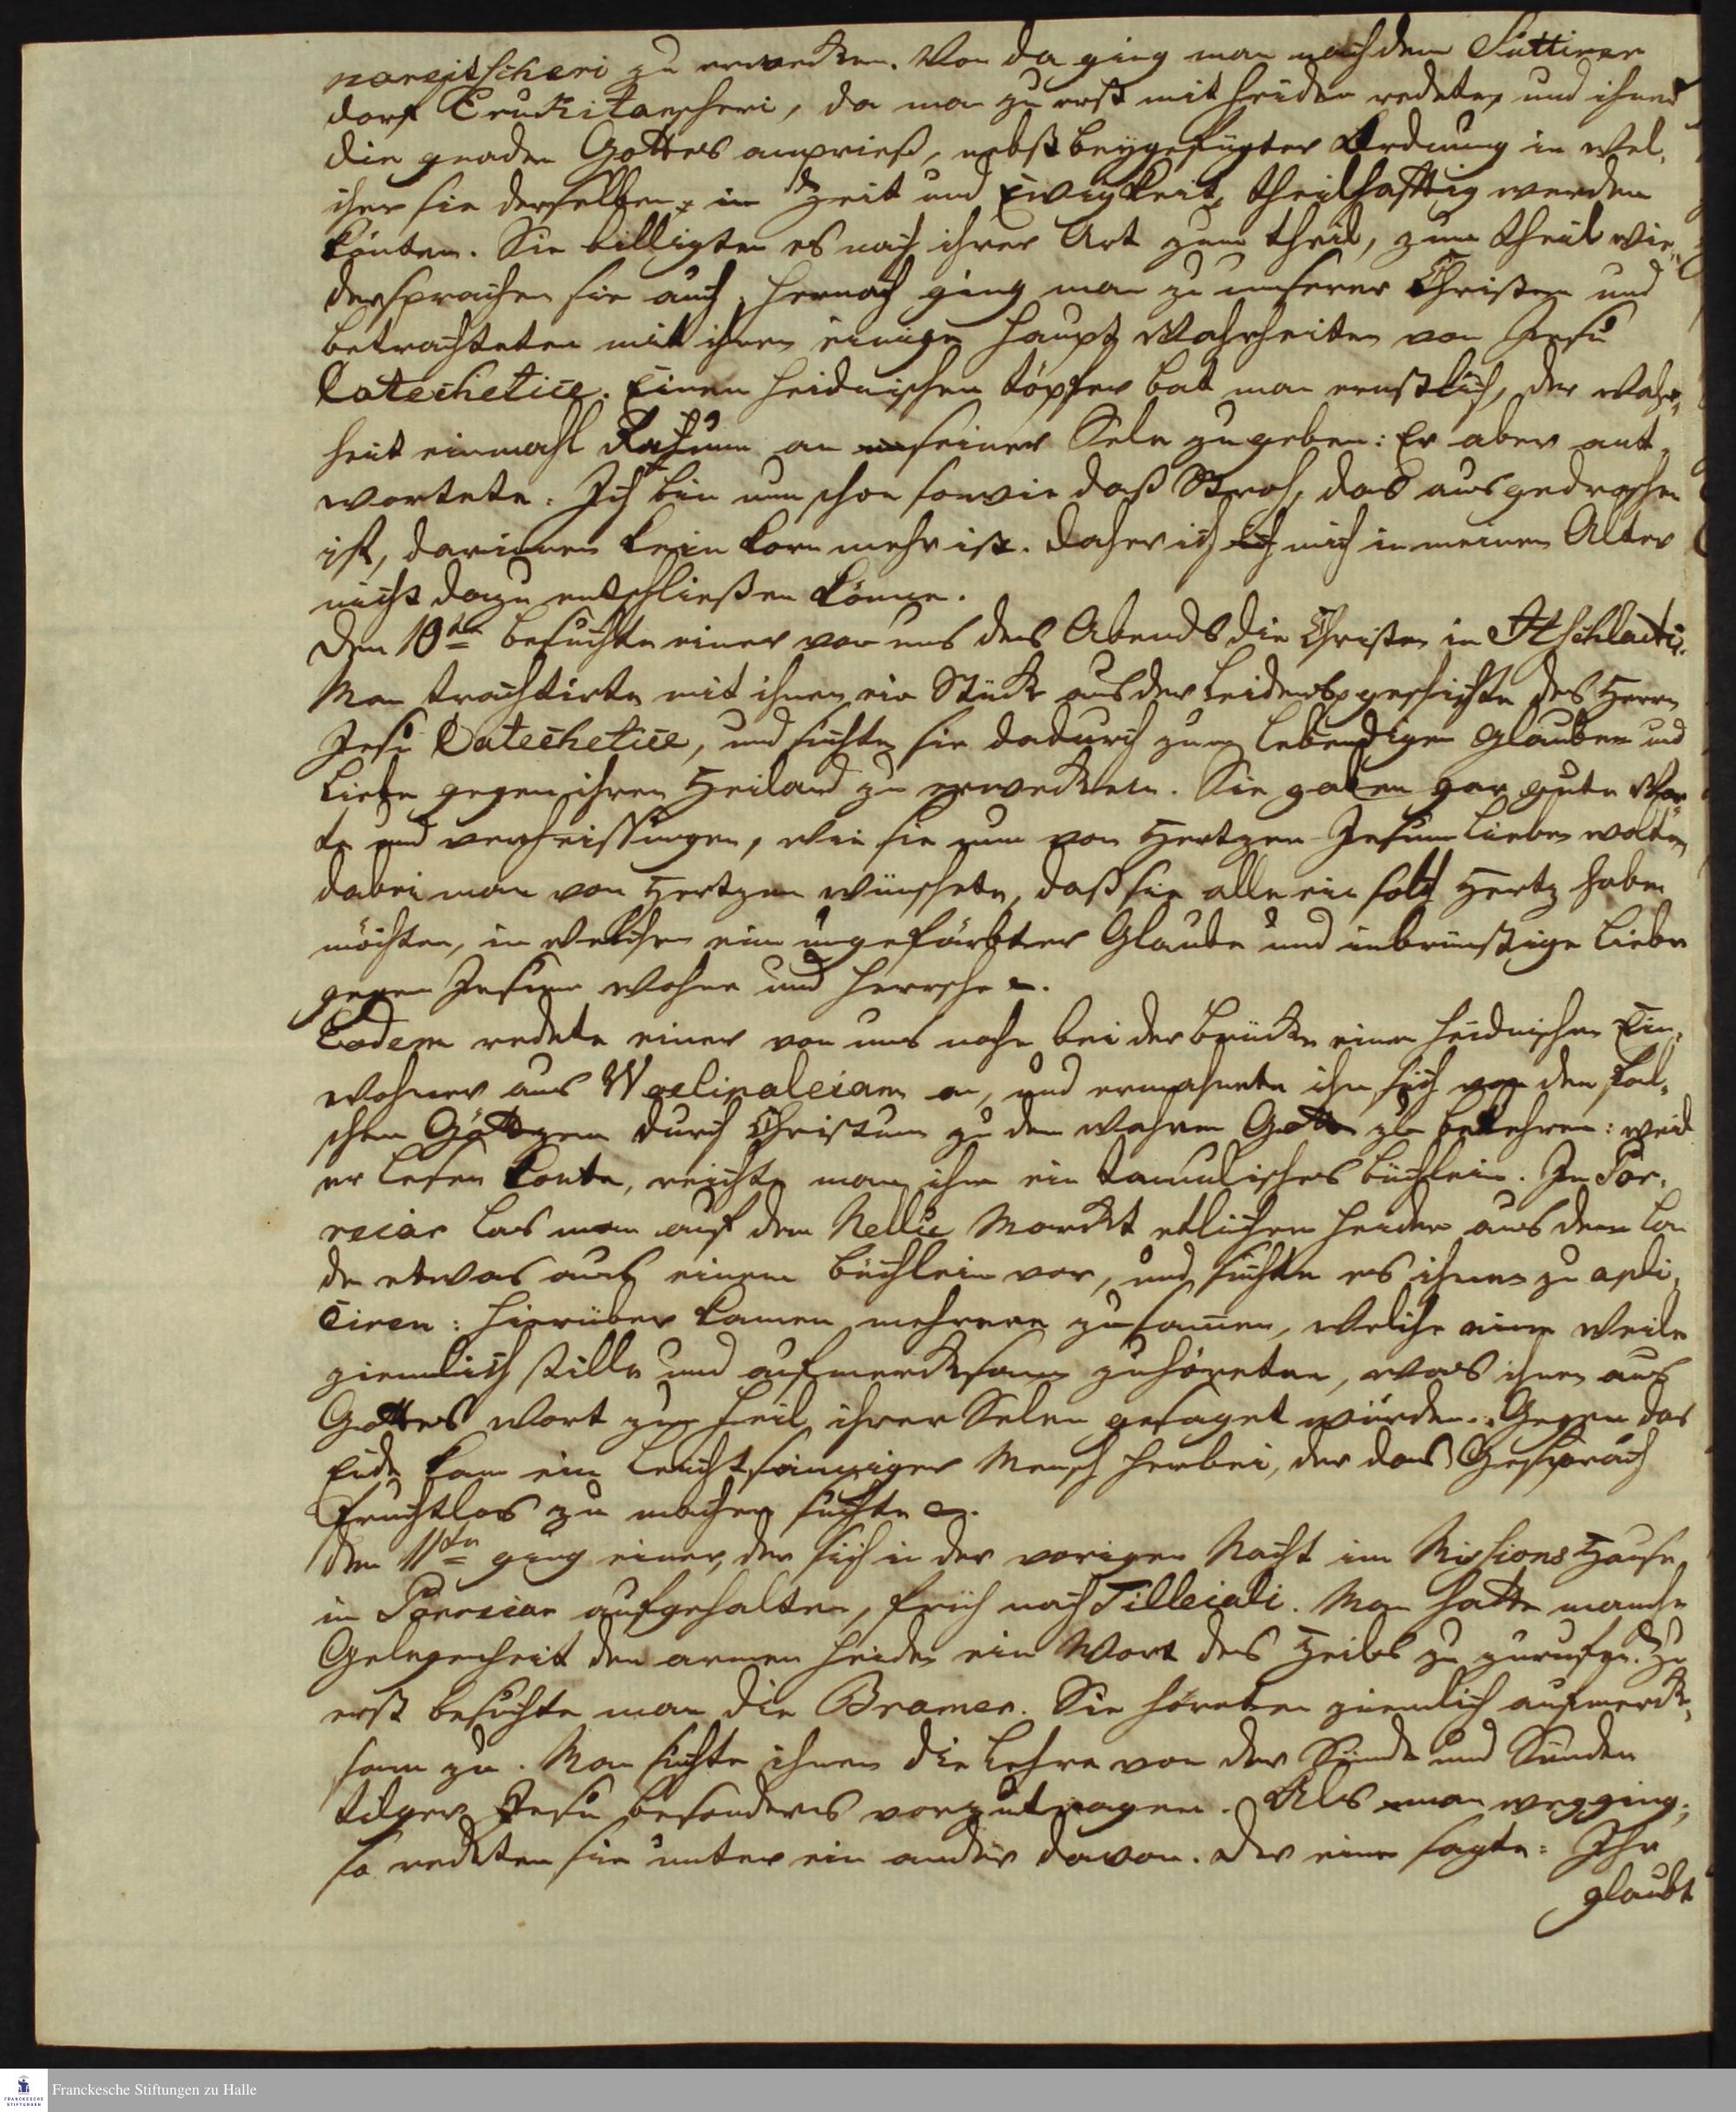 pareitscheri zu erwecken. Von da ging man nach dem Suttirer
dorf Erukitanscheri, da man zu erst mit Heiden redete, und ihnen
die gnade Gottes anprieß, nebst beygefügter Ordnung in wel„
cher sie derselben, in Zeit und Ewigkeit, theilhafftig werden
könten. Sie billigten es nach ihrer Art zum theil, zum theil wie„
dersprachen sie auch. Hernach ging man zu unseren Christen und
betrachteten mit ihnen einige Haupt Wahrheiten von Jesu
Catechetice. Einen heidnischen töpfer bat man ernstlich, der Wahr„
heit einmahl Raum an seiner Sele zu geben: Er aber ant„
wortete: Ich bin nun schon so wie daß Stroh, das ausgedroschen
ist, darinnen kein korn mehr ist. daher ich mich in meinem Alter
nicht dazu entschließen könne.
Den 10ten besuchte einer von uns des Abends die Christen in
Man tractirte mit ihnen ein Stück aus der Leidensgeschichte des Herrn
Jesu Catechetice, und suchte sie dadurch zum lebendigen glauben und
Liebe gegen ihren Heiland zu erwecken. Sie gaben gar gute Wor„
te und verheissungen, wie sie nun von Hertzen Jesum lieben wolten,
dabei man von Hertzen wünschete, daß sie alle ein solch Hertz haben
möchten, in welchen ein ungefärbter Glaube und inbrünstige Liebe
gegen Jesum wohne und herrsche.
Eodem redete einer von uns nahe bei der brücke einen heidnischen Ein„
wohner aus Welipaleiam an, und ermahnete ihn sich von den fal„
schen Göttzen durch Christum zu dem wahren Gott zu bekehren: weil
er lesen konte, reichte man ihm ein tamulisches büchlein. In Por„
reiar las man auf dem Nellu Marckt etlichen Heiden aus dem Lan
de etwas aus einem büchlein vor, und suchte es ihnen zu apli„
ciren: hierüber kamen mehrere zusamen, welche eine weile
ziemlich stille und aufmercksam zuhöreten, was ihnen aus
Gottes Wort zum Heil ihrer Selen gesaget würde. Gegen das
Ende kam ein leichtsinniger Mensch herbei, der das Gespräch
fruchtlos zu machen suchte.
Den 11ten ging einer, der sich in der vorigen Nacht im Missions Hause
in Porreiar aufgehalten, früh nach Tilleiali. Man hatte manche
Gelegenheit den armen Heiden ein Wort des Heils zu zurufen. Zu
erst besuchte man die Bramer. Sie höreten ziemlich aufmerck„
sam zu. Man suchte ihnen die Lehre von der Sünde und Sünden
tilger Jesu besonders vorzutragen. Als man wegging,
so redeten sie unter ein ander davon. Der eine sagte: Ihr
glaubt
Franckesche Stiftungen zu Halle
FRANCKESCHE
STIFTUNGEN